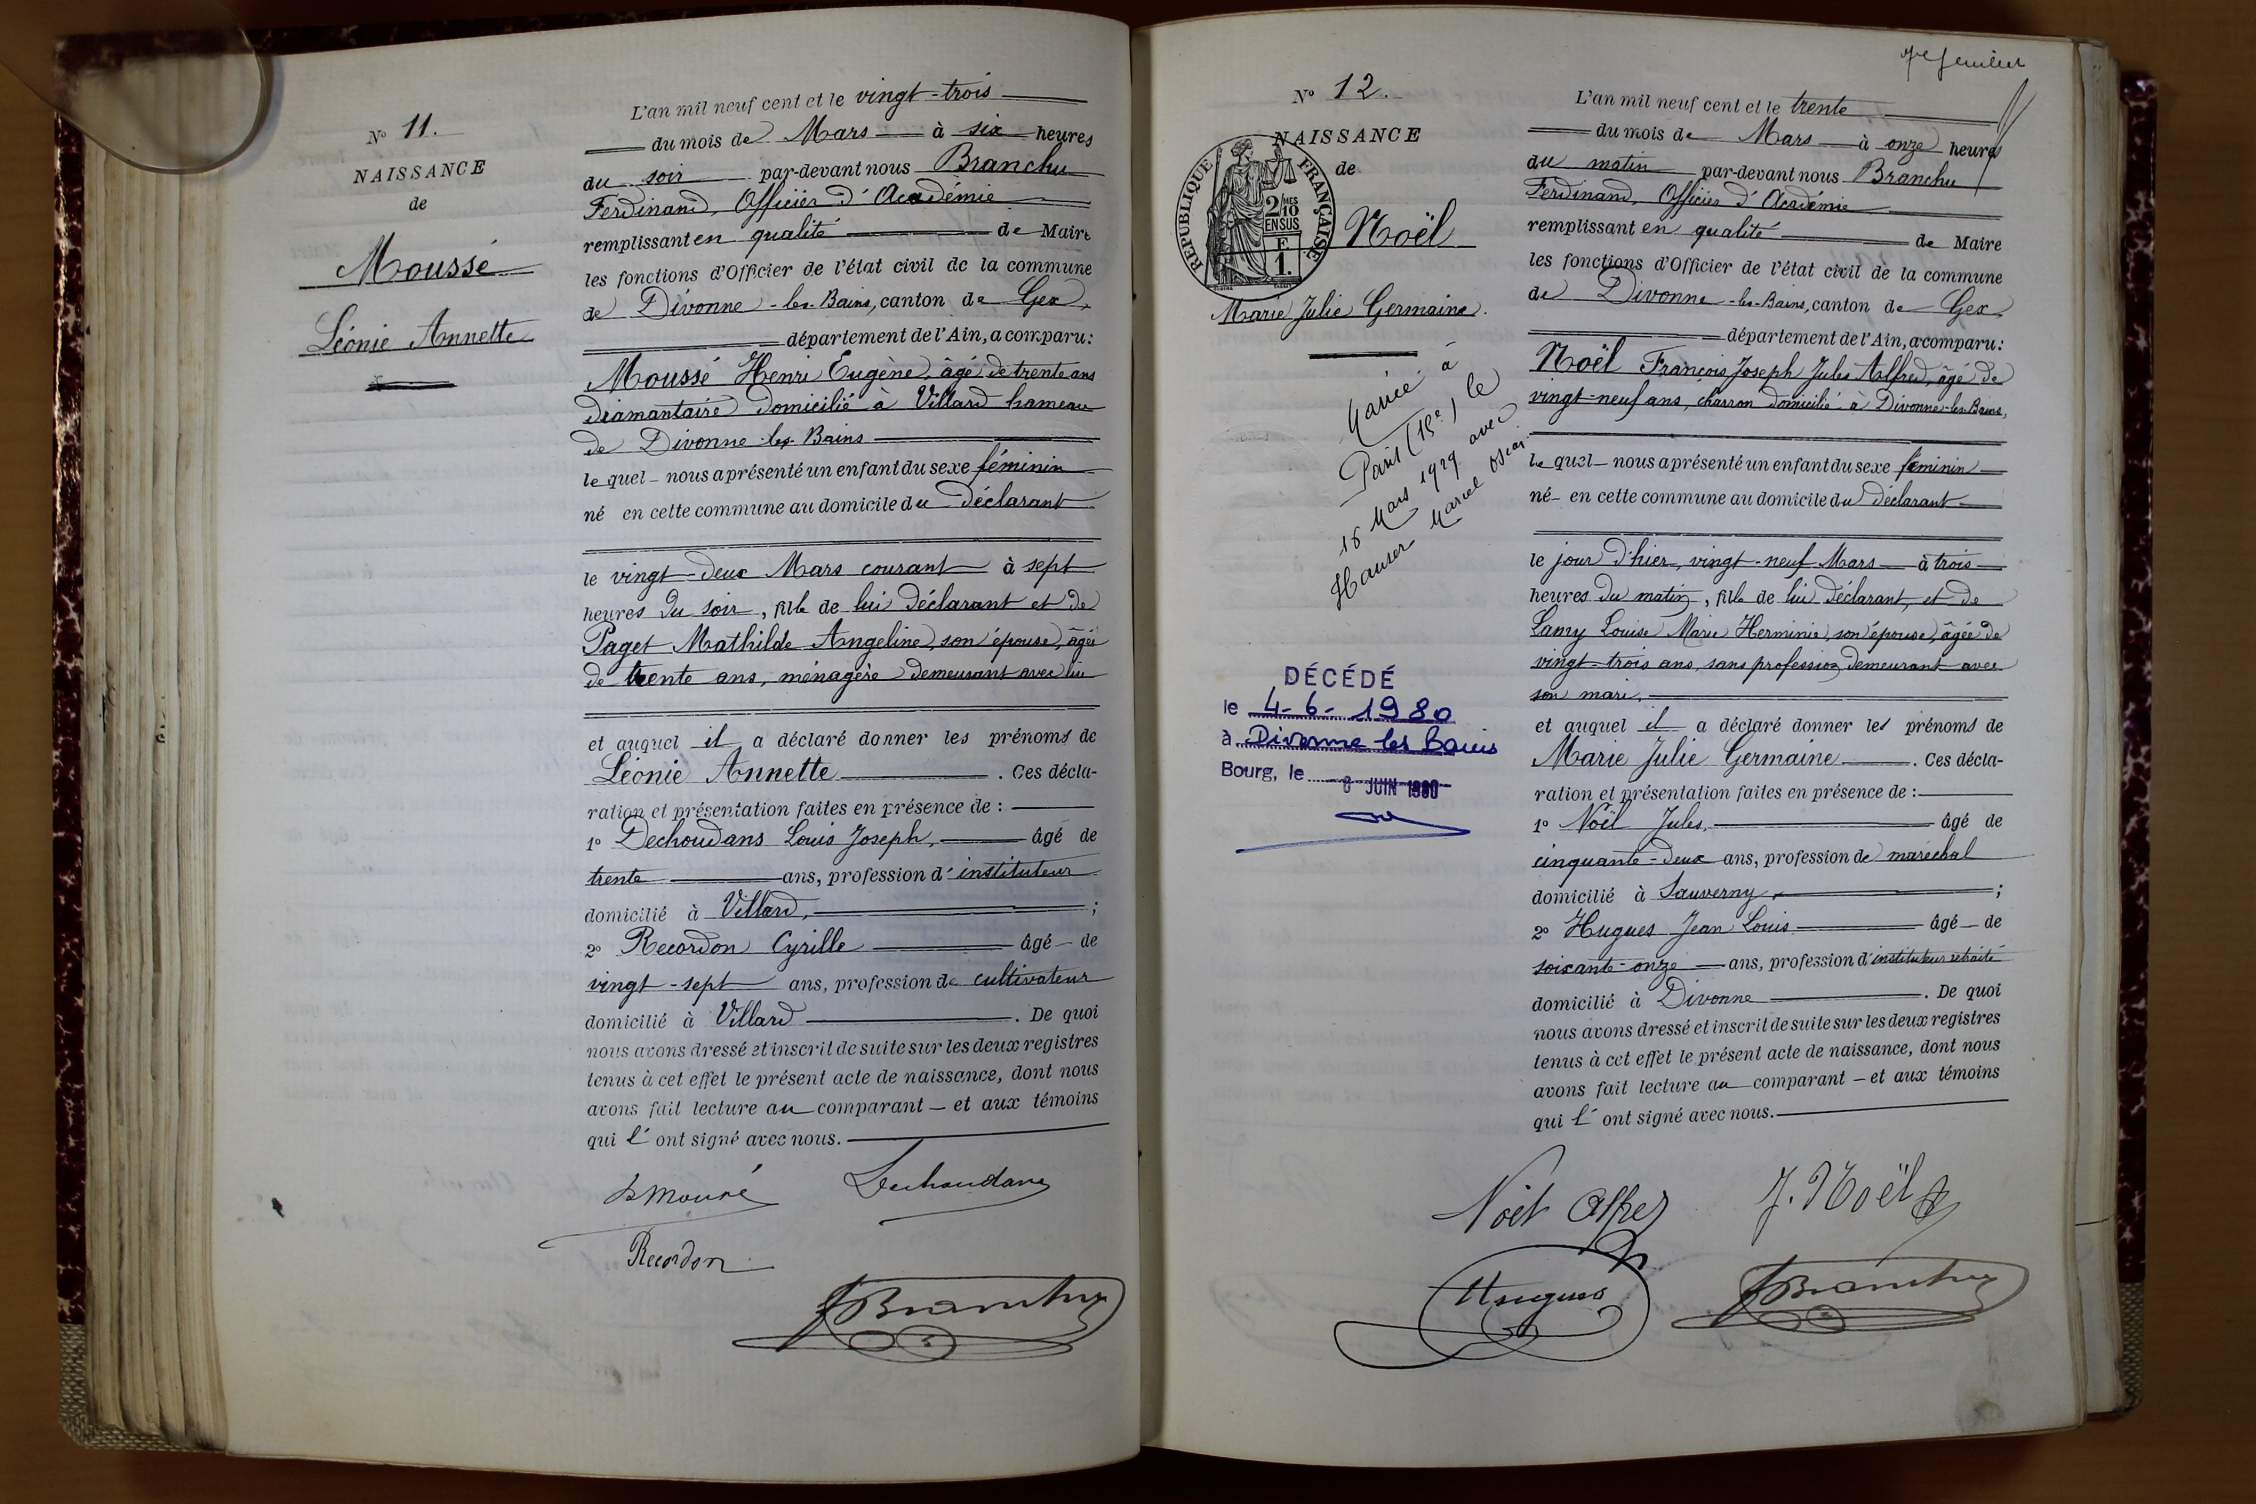 N° 11.
NAISSANCE
de
Moussé
Léonie Annette
L'an mil neuf cent et le vingt-trois
du mois de Mars à six heures
du soir par-devant nous Branchu
Ferdinand, Officier d'Académie
remplissant en qualité de Maire
les fonctions d'Officier de l'état civil de la commune
de Divonne-les-Bains, canton de Gex,
département de l'Ain, a comparu:
Moussé Henri Eugène, âgé de trente ans
diamantaire domicilié à Villard hameau
de Divonne-les-Bains
le quel nous a présenté un enfant du sexe féminin
né en cette commune au domicile du déclarant
le vingt-deux Mars courant à sept
heures du soir, fille de lui déclarant et de
Paget Mathilde Angeline, son épouse, âgée
de trente ans, ménagère demeurant avec lui
et auquel il a déclaré donner les prénoms de
Léonie Annette. Ces décla-
ration et présentation faites en présence de :
1° Dechoudans Louis Joseph, âgé de
trente ans, profession d'instituteur
domicilié à Villard, ;
2° Recordon Cyrille âgé de
vingt-sept ans, profession de cultivateur
domicilié à Villard. De quoi
nous avons dressé et inscrit de suite sur les deux registres
tenus à cet effet le présent acte de naissance, dont nous
avons fait lecture au comparant et aux témoins
qui l'ont signé avec nous.
Dechoudans
Recordon
Branchu
N° 12.
NAISSANCE
de
REPUBLIQUE FRANÇAISE
2/10 MES
EN SUS
F.
1.
Noël
Marie Julie Germaine.
Mariée à
Paris (15e) le
16 Mars 1929 avec
Hauser Marcel Oscar
DÉCÉDÉ
le 4-6-1980
à Divonne les Bains
Bourg, le 6 JUIN 1980
L'an mil neuf cent et le trente
du mois de Mars à onze heures
du matin par-devant nous Branchu
Ferdinand, Officier d'Académie
remplissant en qualité de Maire
les fonctions d'Officier de l'état civil de la commune
de Divonne-les-Bains, canton de Gex,
département de l'Ain, a comparu:
Noël François Joseph Jules Alfred, âgé de
vingt-neuf ans, charron domicilié à Divonne-les-Bains,
le quel nous a présenté un enfant du sexe féminin
né en cette commune au domicile du déclarant
le jour d'hier, vingt-neuf Mars à trois
heures du matin, fille de lui déclarant, et de
Lamy Louise Marie Herminie, son épouse, âgée de
vingt-trois ans, sans profession demeurant avec
son mari,
et auquel il a déclaré donner les prénoms de
Marie Julie Germaine. Ces décla-
ration et présentation faites en présence de :
1° Noël Jules, âgé de
cinquante-deux ans, profession de maréchal
domicilié à Sauverny, ;
2° Hugues Jean Louis âgé de
soixante-onze ans, profession d'instituteur retraité
domicilié à Divonne. De quoi
nous avons dressé et inscrit de suite sur les deux registres
tenus à cet effet le présent acte de naissance, dont nous
avons fait lecture au comparant et aux témoins
qui l'ont signé avec nous.
Noël Alfred
J. Noël
Hugues
Branchu